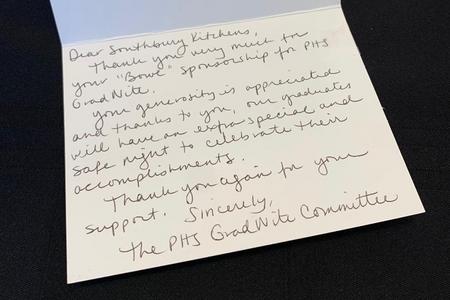 Dear Southbury Kitchens,
Thank you very much for
your "Bowe" sponsorship for PHS
GradNite.
Your generosity is appreciated
and thanks to you, our graduates
will have an extra special and
safe night to celebrate their
accomplishments.
Thank you again for your
support. Sincerely,
The PHS GradNite Committee